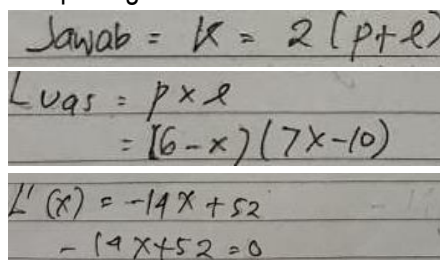 Jawab = K = 2 (p+l)
Luas = p x l
= (6-x) (7x-10)
L' (x) = -14x + 52
- 14x + 52 = 0